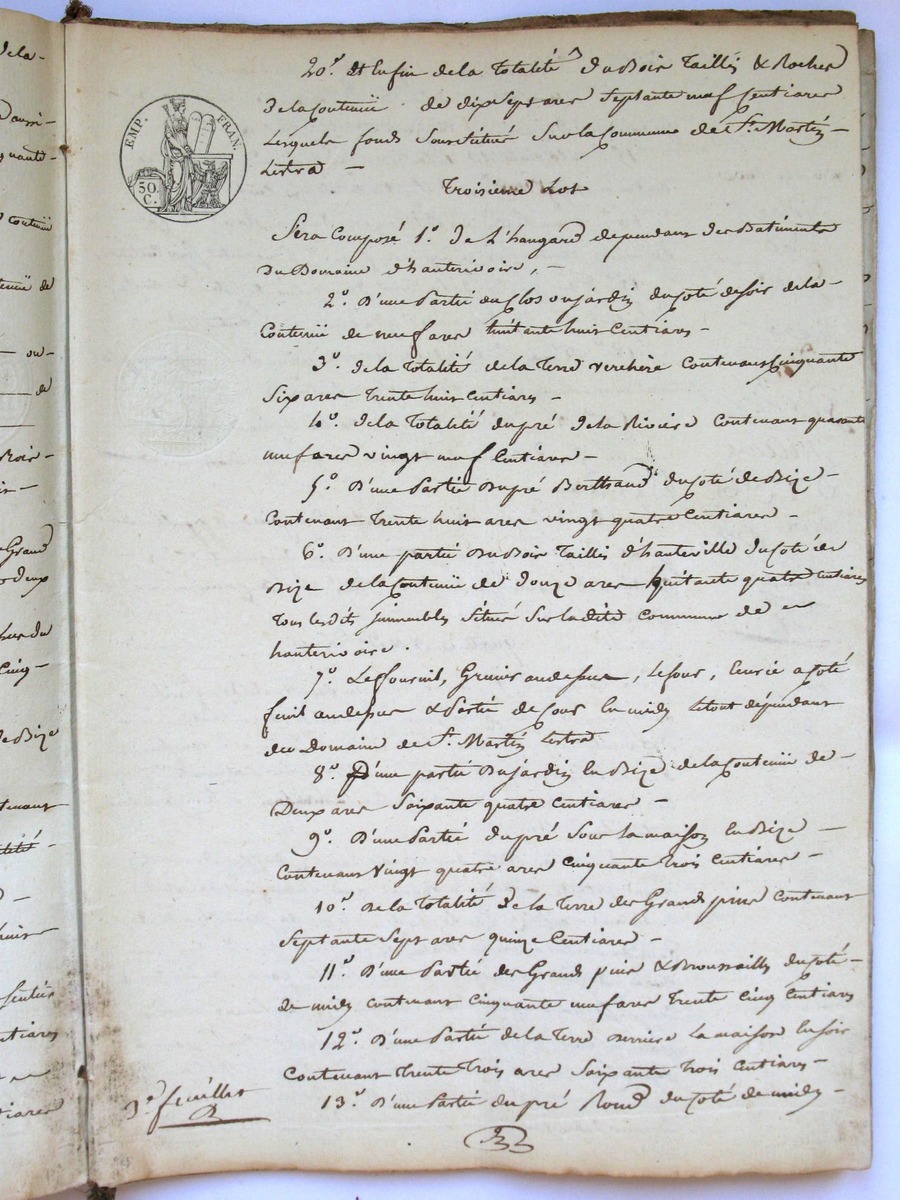 20°. Et Enfin de la Totalité du Bois Taillis & Rocher
De la Contenüe de dix Sept ares Septante neuf Centiares
Lesquels fonds Sont Situés Sur la Commune de St. Martin –
Lestra –
EMP. FRAN.
50. C.
Troisieme Lot
Sera Composé 1°. De L'hangard dependant des Batiments
Du Domaine d'hauterivoire, –
2°. D'une Partie du Clos ou jardin du Coté de Soir de la –
Contenüe de neuf ares huitante huit Centiares –
3°. de la Totalité de la Terre verchère Contenant Cinquante
Six ares Trente huit Centiares –
4°. de la Totalité du pré de la Riviere Contenant quarante
neuf ares vingt neuf Centiares –
5°. D'une Partie du pré Berthaud du Coté de Bize –
Contenant Trente huit ares vingt quatre Centiares –
6°. D'une partie du Bois Taillis d'hauteville du Coté de
Bize de la Contenüe de Douze ares huitante quatre Centiares
Tous les dits immeubles Situés Sur la dite Commune de
hauterivoire.
7°. Le fournil, Grenier au dessus, Le four, Ecurie a Coté
fenil au dessus & Partie de Cour En midy Le tout dépendant
du Domaine de St. Martin Lestra
8°. D'une partie du jardin En Bize de la Contenüe de –
Deux ares Soixante quatre Centiares –
9°. D'une Partie du pré Sous la maison En Bize –
Contenant Vingt quatre ares Cinquante Trois Centiares –
10°. De la Totalité de la Terre des Grands pins Contenant
Septante Sept ares quinze Centiares –
11°. D'une Partie des Grands pins & Broussailles du Coté –
de midy Contenant Cinquante neuf ares Trente Cinq Centiares
12°. D'une Partie de la Terre derriere La maison En Soir
Contenant Trente Trois ares Soixante Trois Centiares –
13°. D'une Partie du pré Rond du Coté de midy –
3e. feuillet